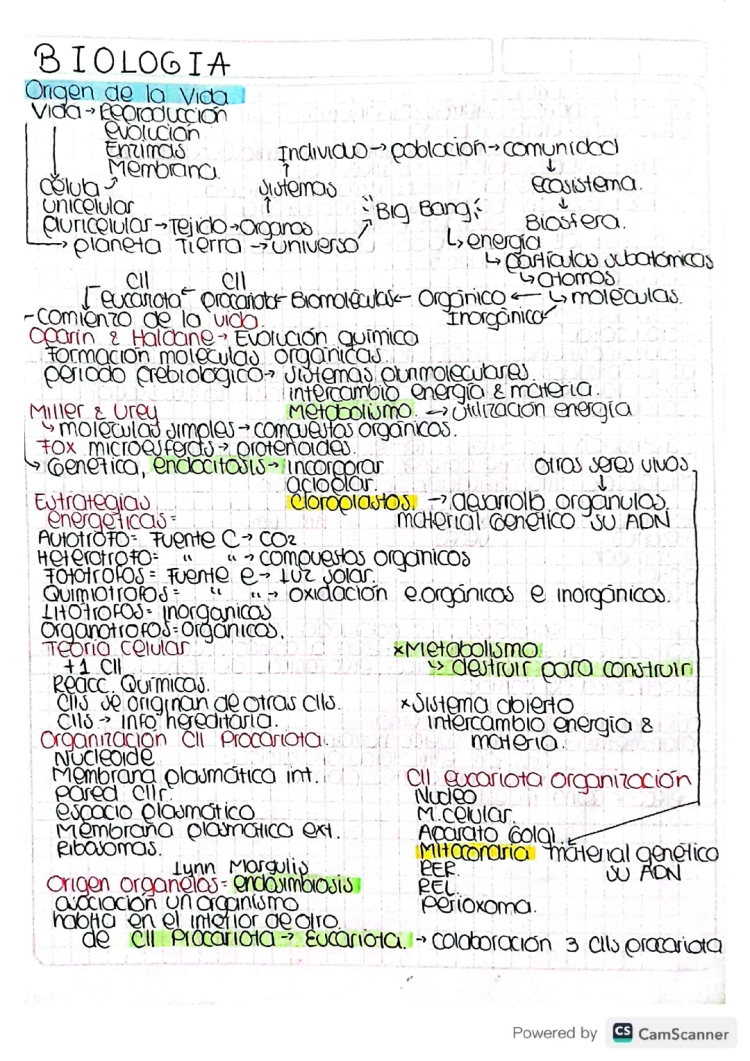 BIOLOGIA
Origen de la Vida
Vida → Reproducción
evolución
Enzimas
Membrana.
Individuo → población → comunidad
célula
sistemas
ecosistema.
unicelular
Pluricelular → Tejido → Organos
Big Bang
Biosfera.
→ planeta Tierra → universo
↳ energía
↳ Partículas subatómicas
↳ atomos
Cll Cll
eucariota ← procariota ← Biomoléculas ← Orgánico ← ↳ moléculas.
- Comienzo de la vida.
Inorgánico
Oparin & Haldane → Evolución química
Formación moléculas orgánicas.
periodo prebiológico → sistemas plurimoleculares.
intercambio energía & materia.
Miller & Urey
Metabolismo. → Utilización energía
↳ moléculas simples → compuestos orgánicos.
Fox microesferas → protenoides.
↳ Genética, endocitosis → incorporar
otros seres vivos
acoplar.
Estrategias
cloroplastos → desarrollo orgánulos
energeticas =
material genético su ADN
Autótrofo = Fuente C → CO2
Heterótrofo = " " → compuestos orgánicos
Fototrofos = Fuente e → Luz solar.
Quimiotrofos = " " → oxidación e.orgánicos e inorgánicos.
Litótrofos = inorganicos
Organotrofos = Orgánicos.
Teoría celular
x Metabolismo
+1 Cll
↳ destruir para construir
Reacc. Químicas.
Clls se originan de otras clls.
x Sistema abierto
Clls → info hereditaria.
intercambio energía &
materia.
Organización Cll Procariota.
Nucleoide
Membrana plasmática int.
Cll eucariota organización
Pared Cllr.
Nucleo
espacio plasmático
M.celular.
Membrana plasmática ext.
Aparato Golgi.
Ribosomas.
Mitocondria material genético
Lynn Margulis
RER.
su ADN
Origen organelos = endosimbiosis
REL.
asociación un organismo
Perioxoma.
habita en el interior de otro
de Cll Procariota → Eucariota. → colaboración 3 clls procariota
Powered by CS CamScanner